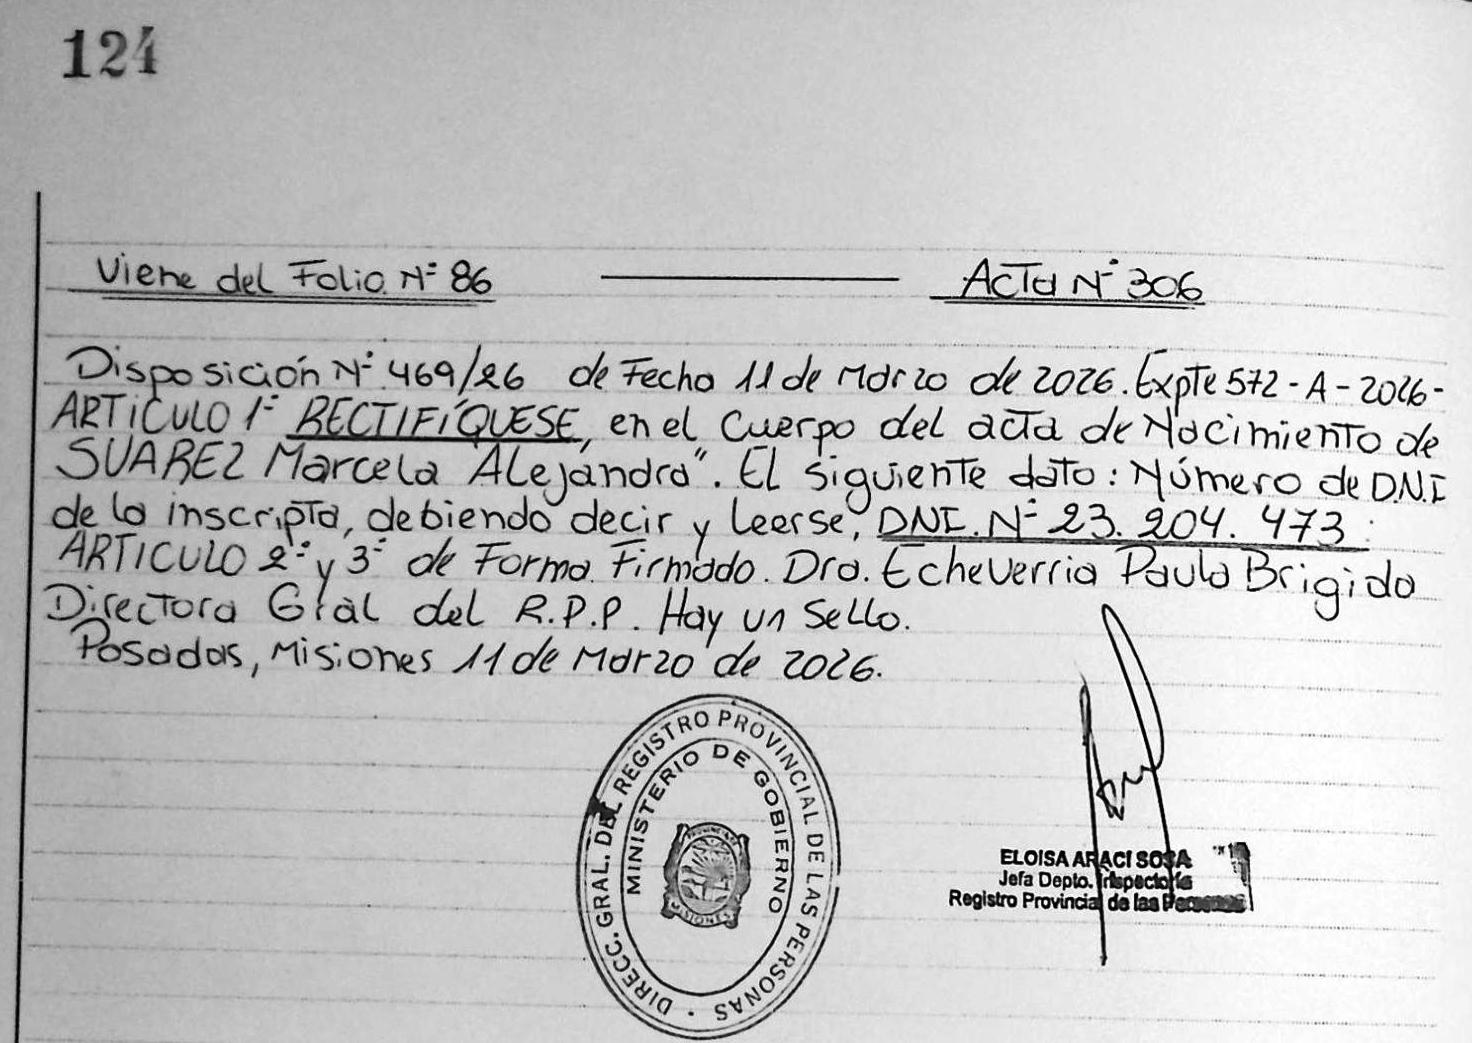 124
Viene del Folio Nº 86 Acta Nº 306
Disposición Nº 469/26 de Fecha 11 de Marzo de 2026. Expte 572-A-2026-
ARTICULO 1º RECTIFÍQUESE, en el Cuerpo del acta de Nacimiento de
SUAREZ Marcela Alejandra". El siguiente dato: Número de D.N.I
de la inscripta, debiendo decir y leerse, DNI. Nº 23.204.473:
ARTICULO 2º y 3º de Forma Firmado. Dra. Echeverria Paula Brigida
Directora Gral del R.P.P. Hay un Sello.
Posadas, Misiones 11 de Marzo de 2026.
DIRECC. GRAL. DEL REGISTRO PROVINCIAL DE LAS PERSONAS
MINISTERIO DE GOBIERNO
MISIONES
ELOISA ARACI SOSA
Jefa Depto. Inspectoría
Registro Provincial de las Personas